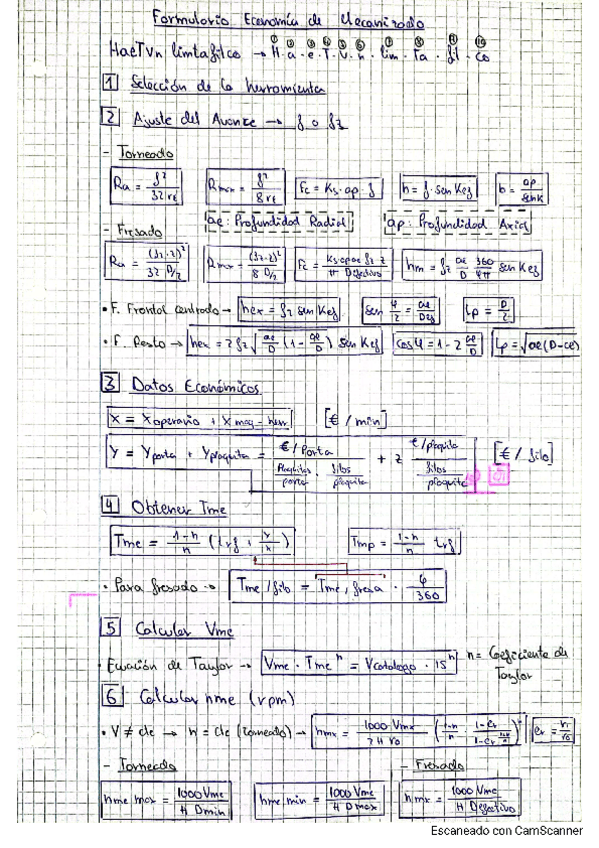 Formulario Economía de Mecanizado
HaeTVn limtafilco → H·a·e·T·V·n·lim·Ta·fil·Co
1 Selección de la herramienta
2 Ajuste del Avance → f o fz
- Torneado
Ra = f²/32 rε   Rmax = f²/8 rε   Fc = Ks·ap·f   h = f·sen Kef   b = ap/senK
ae: Profundidad Radial   ap: Profundidad Axial
- Fresado
Ra = (fz·z)²/32 D/2   Rmax = (fz·z)²/8 D/2   Fc = Ks·ap·ae fz z/π Defectivo   hm = fz ae/D 360/φπ sen Kef
• F. Frontal centrado → hex = fz sen Kef   sen φ/2 = ae/Def   Lp = D/2
• F. Resto → hex = 2 fz √(ae/D (1 - ae/D)) sen Kef   cos φ = 1 - 2 ae/D   Lp = √ae(D-ae)
3 Datos Económicos
X = Xoperario + Xmaq-herr   [€/min]
Y = Yporta + Yplaquita = €/Porta / Plaquitas/porta · filos/plaquita + z €/plaquita / filos/plaquita   [€/filo]
4 Obtener Tme
Tme = 1-n/n (trf + y/x)   Tmp = 1-n/n trf
• Para fresado → Tme/filo = Tme, fresa · φ/360
5 Calcular Vme
• Ecuación de Taylor → Vme · Tme^n = Vcatalogo · 15^n   n = Coeficiente de
Taylor
6 Calcular nme (rpm)
• V ≠ cte → n = cte (torneado) → nme = 1000 Vme/2 π ro   er = ri/ro
- Torneado   - Fresado
nme max = 1000 Vme/π Dmin   nme min = 1000 Vme/π Dmax   nme = 1000 Vme/π Defectivo
Escaneado con CamScanner